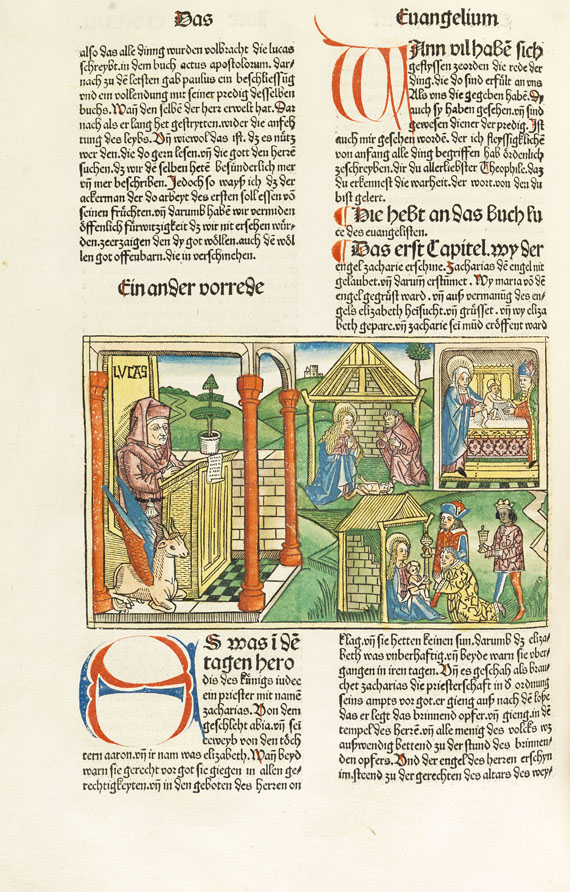 Das
Euangelium
also das alle dinng wurden volbracht die lucas
schreybt.in dem buch actus apostolorum. dar-
nach zu dē letsten gab paulus ein beschliessūg
vnd ein vollendung mit seiner predig desselben
buchs. Wañ den selbē der herr erwelt hat. Dar
nach als er lang het gestrytten.wider die anfech
tung des leybs. Vñ wiewol das ist. dz es nütz
wer den.die do gern lesen.vñ die gott den herrē
suchen.dz wir dē selben hetē besünderlich mer
vñ mer beschriben. Jedoch so wayß ich dz der
ackerman der do arbeyt des ersten soll essen vō
seinen früchten.vñ darumb habē wir vermiden
öffenlich fürwitzigkeit dz wir nit ersehen wür-
den.zeerzaigen den dy got wöllen.auch dē wöl
len got offenbarn.die in verschmehen.
Ein ander vorrede
WAnn vil habē sich
geflyssen zeorden die rede der
ding.die do sind erfült an vns
Als vns die gegeben habē. Dy
auch sy haben gesehen.vñ sind
gewesen diener der predig. Ist
auch mir gesehen wordē. der ich fleyssigklichē
von anfang alle ding begriffen hab ordenlich
zeschreyben.dir du allerliebster Theophile.daz
du erkennest die warheit.der wort.von den du
bist gelert.
Hie hebt an das buch lu
ce des euangelisten.
Das erst Capitel.wy der
engel zacharie erschine. Zacharias dē engel nit
gelaubet.vñ darum erstumet. Wy maria vō dē
engel gegrüst ward .vñ auß vermanūg des en-
gels elizabeth heisucht.vñ grüsset .vñ wy eliza
beth gepare.vñ zacharie sei mūd eröffent ward
LVCAS
ES was ī dē
tagen hero
dis des künigs iudee
ein priester mit namē
zacharias. Von dem
geschlecht abia.vñ sei
eeweyb von den töch
tern aaron.vñ ir nam was elizabeth. Wañ beyd
warn sie gerecht vor got sie giegen in allen ge-
rechtigkeyten.vñ in den geboten des herren on
klag.vñ sie hetten keinen sun.darumb dz eliza-
beth was vnberhaftig.vñ beyde warn sie vber-
gangen in iren tagen. Vñ es geschah als brau-
chet zacharias die priesterschaft in d̄ ordnung
seins ampts vor got.er gieng auß nach dē lose
das er legt das brinnend opfer.vñ gieng.in dē
tempel des herrē.vñ alle menig des volcks wz
außwendig bettend zu der stund des brinnen-
den opfers. Vnd der engel des herren erschyn
im.steend zu der gerechten des altars des wey-